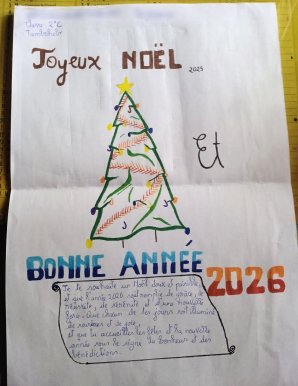 Classe : 2°C
Joyeux NOËL 2025
Et
BONNE ANNÉE
2026
Je te souhaite un Noël doux et paisible,
et que l'année 2026 soit remplie de grâce, de
réussite, de sérénité et d'une nouvelle
force. Que chacun de tes jours soit illuminé
de sourires et de joie,
et que tu accueilles les fêtes et la nouvelle
année sous le signe du bonheur et des
bénédictions.